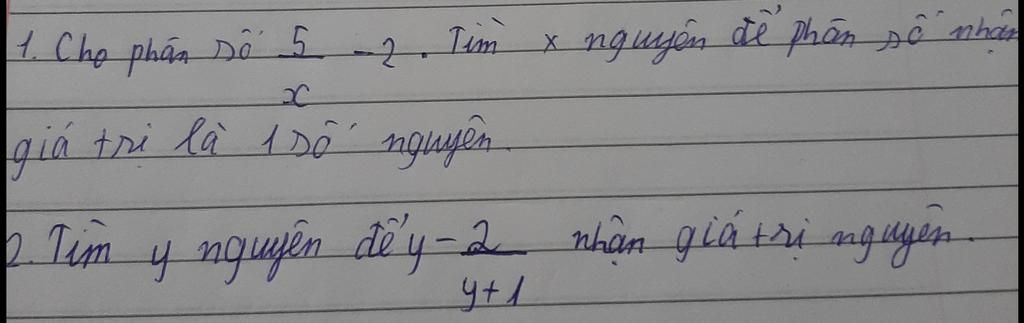 1. Cho phân số 5/x - 2. Tìm x nguyên để phân số nhận
giá trị là 1 số nguyên.
2. Tìm y nguyên để y - 2/y+1 nhận giá trị nguyên.